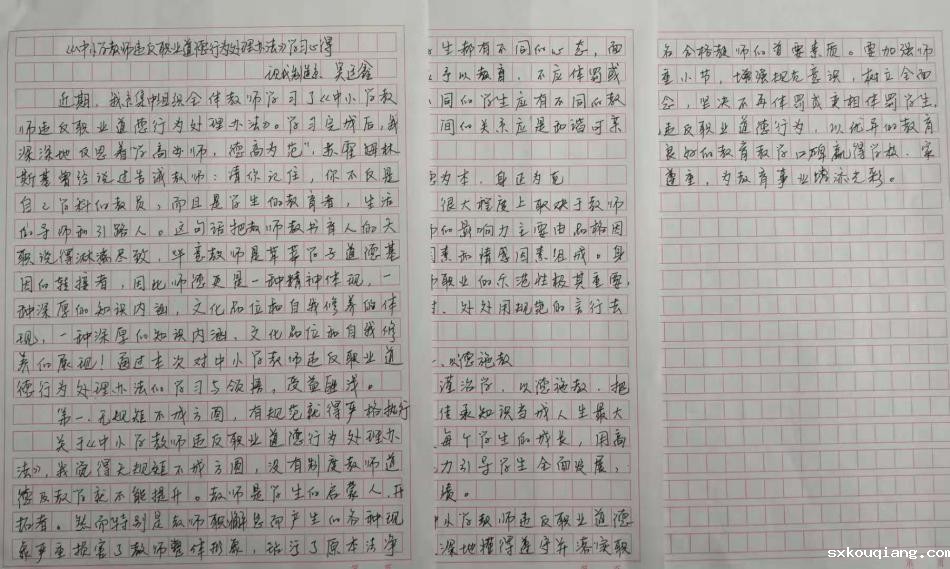 《中小学教师违反职业道德行为处理办法》学习心得
近期，我校集中组织全体教师学习了《中小学教
师违反职业道德行为处理办法》。学习完成后，我
深深地反思着"学高为师，德高为范"，苏霍姆林
斯基曾经说过告诫教师：请你记住，你不仅是
自己学科的教员，而且是学生的教育者，生活
的导师和引路人。这句话把教师教书育人的天
职说得淋漓尽致，毕竟教师是莘莘学子道德基
因的转接者，因此师德更是一种精神体现，一
种深厚的知识内涵，文化品位和自我修养的体
现，一种深厚的知识内涵、文化品位和自我修
养的展现！通过本次对中小学教师违反职业道
德行为处理办法的学习与领悟，受益匪浅。
第一、无规矩不成方圆，有规范就得严格执行
关于《中小学教师违反职业道德行为处理办
法》，我觉得无规矩不成方圆，没有制度教师道
德及教学就不能提升。教师是学生的启蒙人、开
拓者。然而特别是教师职懈怠而产生的各种现
象严重损害了教师整体形象，玷污了原本洁净
学生都有不同的心态，面
予以教育，不应体罚或
同的学生应有不同的教
间的关系应是和谐可亲
为本，身正为范
很大程度上取决于教师
的影响力主要由品格因
素和情感因素组成。身
职业的示范性极其重要，
处处用规范的言行去
、以德施教
谨治学，以德施教，把
传承知识当成人生最大
每个学生的成长，用高
力引导学生全面发展，
绩。
小学教师违反职业道德
深地懂得遵守并落实职
名合格教师的首要素质。要加强师
重小节，增强规范意识，树立全面
念，坚决不再体罚或变相体罚学生，
违反职业道德行为，以优异的教育
良好的教育教学口碑赢得学校、家
尊重，为教育事业增添光彩。
sxkouqiang.com